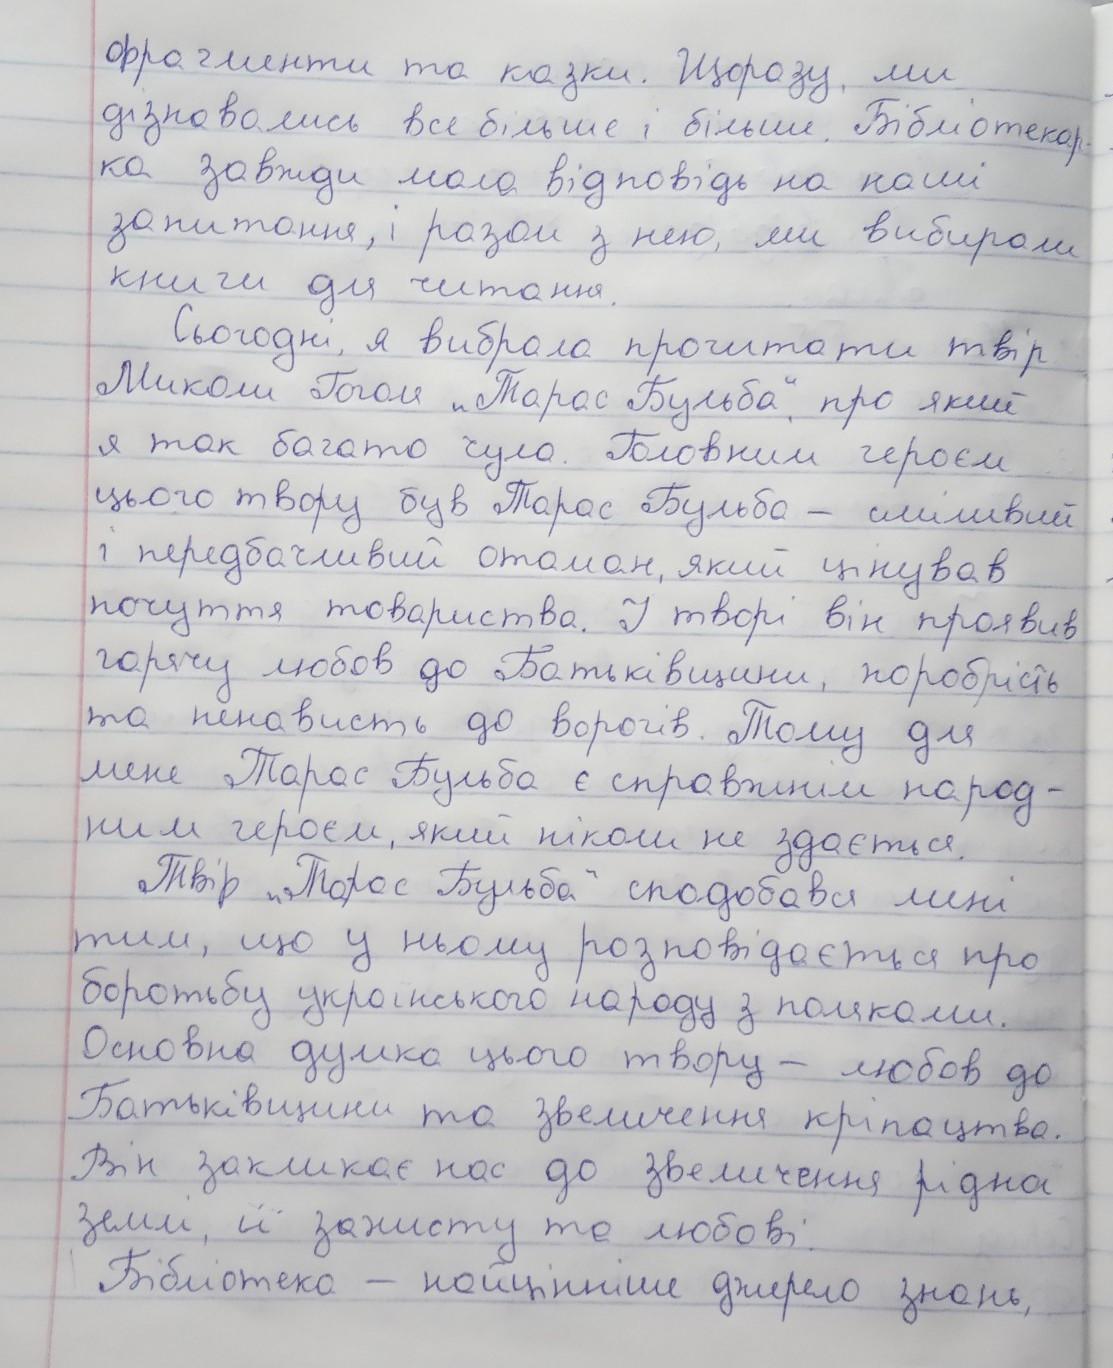 фрагменти та казки. Щоразу, ми
дізнавались все більше і більше. Бібліотекар-
ка завжди мала відповідь на наші
запитання, і разом з нею, ми вибирали
книги для читання.
Сьогодні, я вибрала прочитати твір
Миколи Гоголя „Тарас Бульба", про який
я так багато чула. Головним героєм
цього твору був Тарас Бульба – сміливий
і передбачливий отаман, який цінував
почуття товариства. У творі він проявив
гарячу любов до Батьківщини, хоробрість
та ненависть до ворогів. Тому для
мене Тарас Бульба є справжнім народ-
ним героєм, який ніколи не здається.
Твір „Тарас Бульба" сподобався мені
тим, що у ньому розповідається про
боротьбу українського народу з поляками.
Основна думка цього твору – любов до
Батьківщини та звеличення кріпацтва.
Він закликає нас до звеличення рідна
землі, її захисту та любові.
Бібліотека – найцінніше джерело знань,